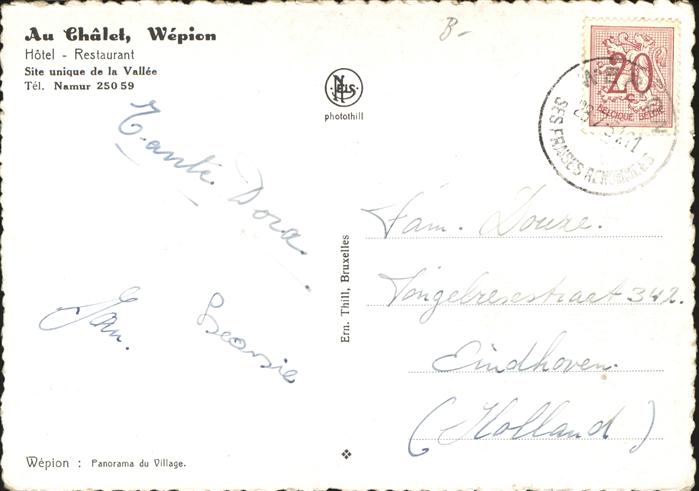 Au Châlet, Wépion
Hôtel - Restaurant
Site unique de la Vallée
Tél. Namur 250 59
B-
NELS
photothill
20
c
BELGIQUE BELGIE
SES FRAISES RENOMMÉES
Tante Dora.
Jan.
Ern. Thill, Bruxelles
Fam. Douze.
342.
Eindhoven.
(Holland)
Wépion : Panorama du Village.